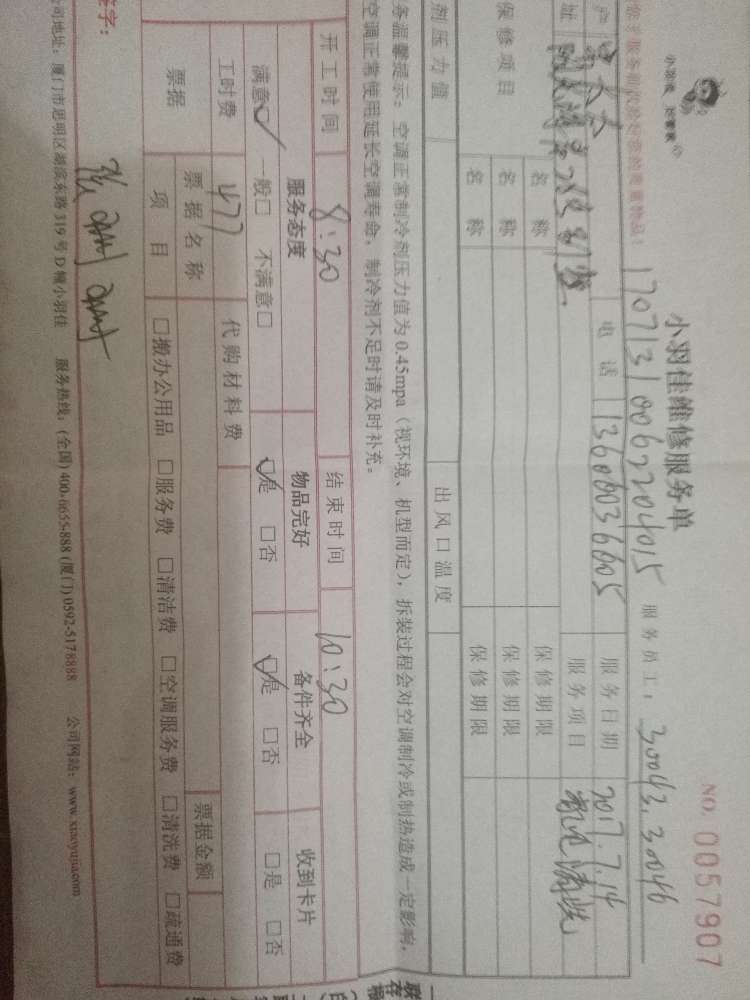 小羽佳维修服务单
NO. 0057907
小羽佳 还管家
17071310062204015 服务员工：30043.30046
户 电话 13606036605 服务日期 2017.7.14
址 服务项目 清洗
保修项目 名称 保修期限
名称 保修期限
名称 保修期限
剂压力值 出风口温度
务温馨提示：空调正常制冷剂压力值为0.45mpa（视环境、机型而定），拆装过程会对空调制冷或制热造成一定影响，
空调正常使用延长空调寿命，制冷剂不足时请及时补充。
开工时间 8:30 结束时间 10:30
服务态度 物品完好 备件齐全 收到卡片
满意☑ 一般□ 不满意□ ☑是 □否 ☑是 □否 □是 □否
工时费 477 代购材料费
票据 票据名称 票据金额
项目 □搬办公用品 □服务费 □清洁费 □空调服务费 □清洗费 □疏通费
签字：
公司地址：厦门市思明区湖滨东路319号D幢小羽佳 服务热线：(全国) 400-6655-888 (厦门) 0592-5178888 公司网站：www.xiaoyujia.com